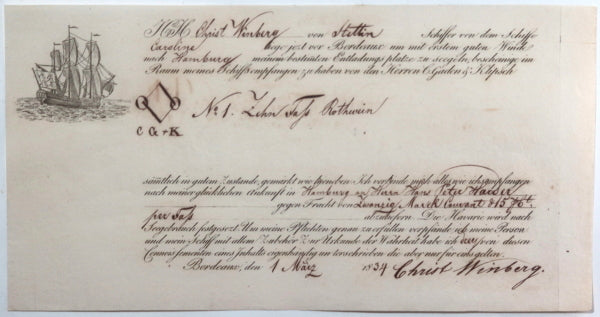 Ich Christ Winberg von Stettin Schiffer vom Schiffe
Caroline liege jezt vor Bordeaux um mit erstem guten Winde
nach Hamburg meinem bestimten Entladungsplatze zu seegeln, bescheinige im
Raum meines Schiffs empfangen zu haben von den Herren C. Gaden & Klipsch
No 1. Zehn Fass Rothwein
C G & K
sämtlich in gutem Zustande, gemärkt wie hieneben. Ich verbinde mich alles wie ich empfangen
nach meiner glücklichen Ankunft in Hamburg an Herrn Hans Peter Harder
gegen Fracht von Zwanzig Marck Courant & 15 pCt.
per Fass abzuliefern. Die Havarie wird nach
Seegebrauch festgesezt. Um meine Pflichten genau zu erfüllen verpfände ich meine Person
und mein Schiff mit allem Zubehör. Zur Urkunde der Wahrheit habe ich von diesen
Connossementen eines Inhalts eigenhändig unterschrieben die aber nur für eins gelten.
Bordeaux, den 1 März 1834 Christ Winberg.